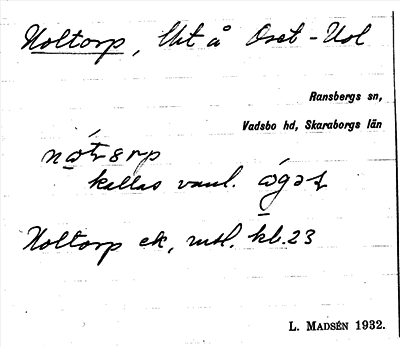 Noltorp, Ut å Oset-Nol
Ransbergs sn,
Vadsbo hd, Skaraborgs län
kallas vanl.
Noltorp ek, mtl. kb. 23
L. MADSÉN 1932.